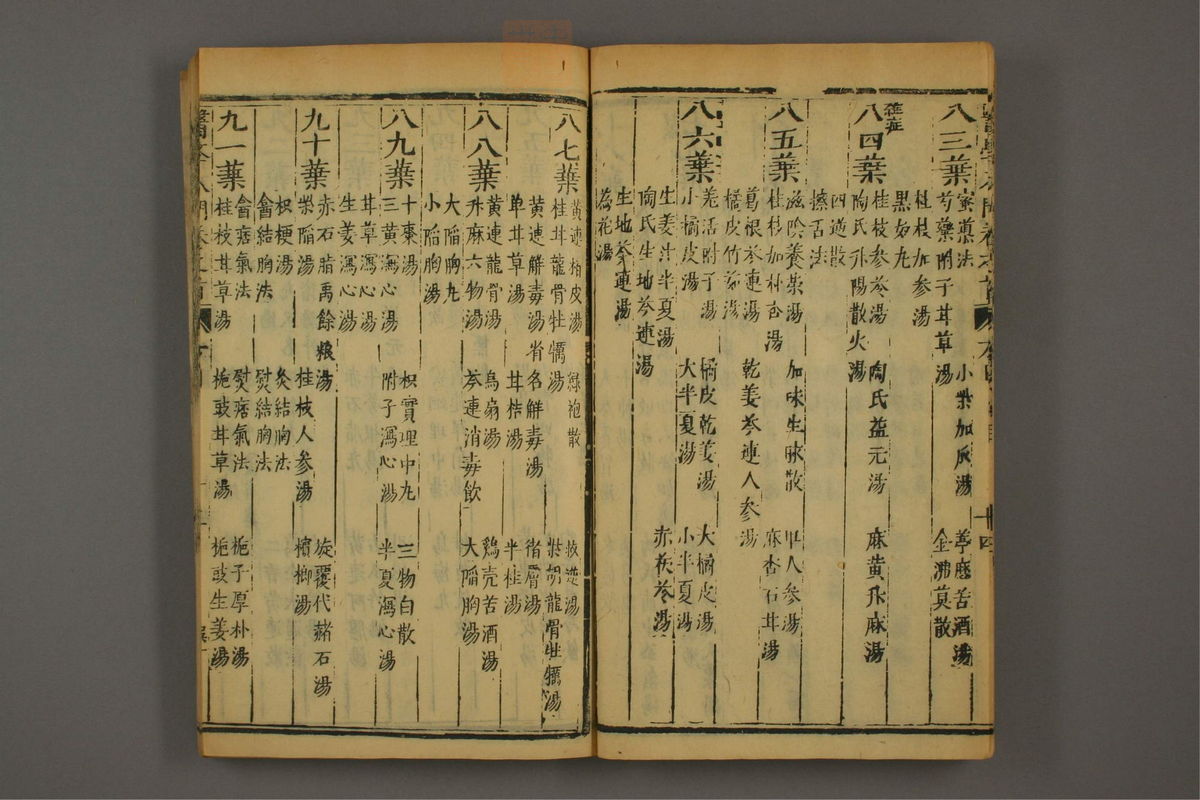 八三葉
蜜煎法 小柴加 湯 苦酒湯
芍藥附子甘草湯 金沸草散
桂枝加參湯
黑奴丸
八四葉
雜症
桂枝參苓湯 陶氏益元湯 麻黄升麻湯
陶氏升陽散火湯
四逆散
擦舌法
八五葉
滋陰養榮湯 加味生脉散 甲人參湯
桂枝加朴杏湯 麻杏石甘湯
葛根芩連湯 乾姜芩連人參湯
橘皮竹茹湯
八六葉
羌活附子湯 橘皮乾姜湯 大橘皮湯
小橘皮湯 大半夏湯 小半夏湯
生姜汁半夏湯 赤茯苓湯
陶氏生地芩連湯
生地芩連湯
葛花湯
八七葉
黄連栢皮湯 綠袍散 救逆湯
桂甘龍骨牡蠣湯 柴胡龍骨牡蠣湯
黄連解毒湯省名解毒湯 犀湯
單甘草湯 甘桔湯 半桂湯
八八葉
黄連龍骨湯 烏扇湯 鷄壳苦酒湯
升麻六物湯 芩連消毒飲 大陷胸湯
大陷胸丸
小陷胸湯
八九葉
十棗湯 枳實理中丸 三物白散
三黄瀉心湯 附子瀉心湯 半夏瀉心湯
甘草瀉心湯
生姜瀉心湯
九十葉
赤石脂禹餘粮湯 桂枝人參湯 旋覆代赭石湯
柴陷湯 檳榔湯
枳梗湯 灸結胸法
畣結胸法 熨結胸法
九一葉
畣痞氣法 熨痞氣法 梔子厚朴湯
桂枝甘草湯 梔豉甘草湯 梔豉生姜湯